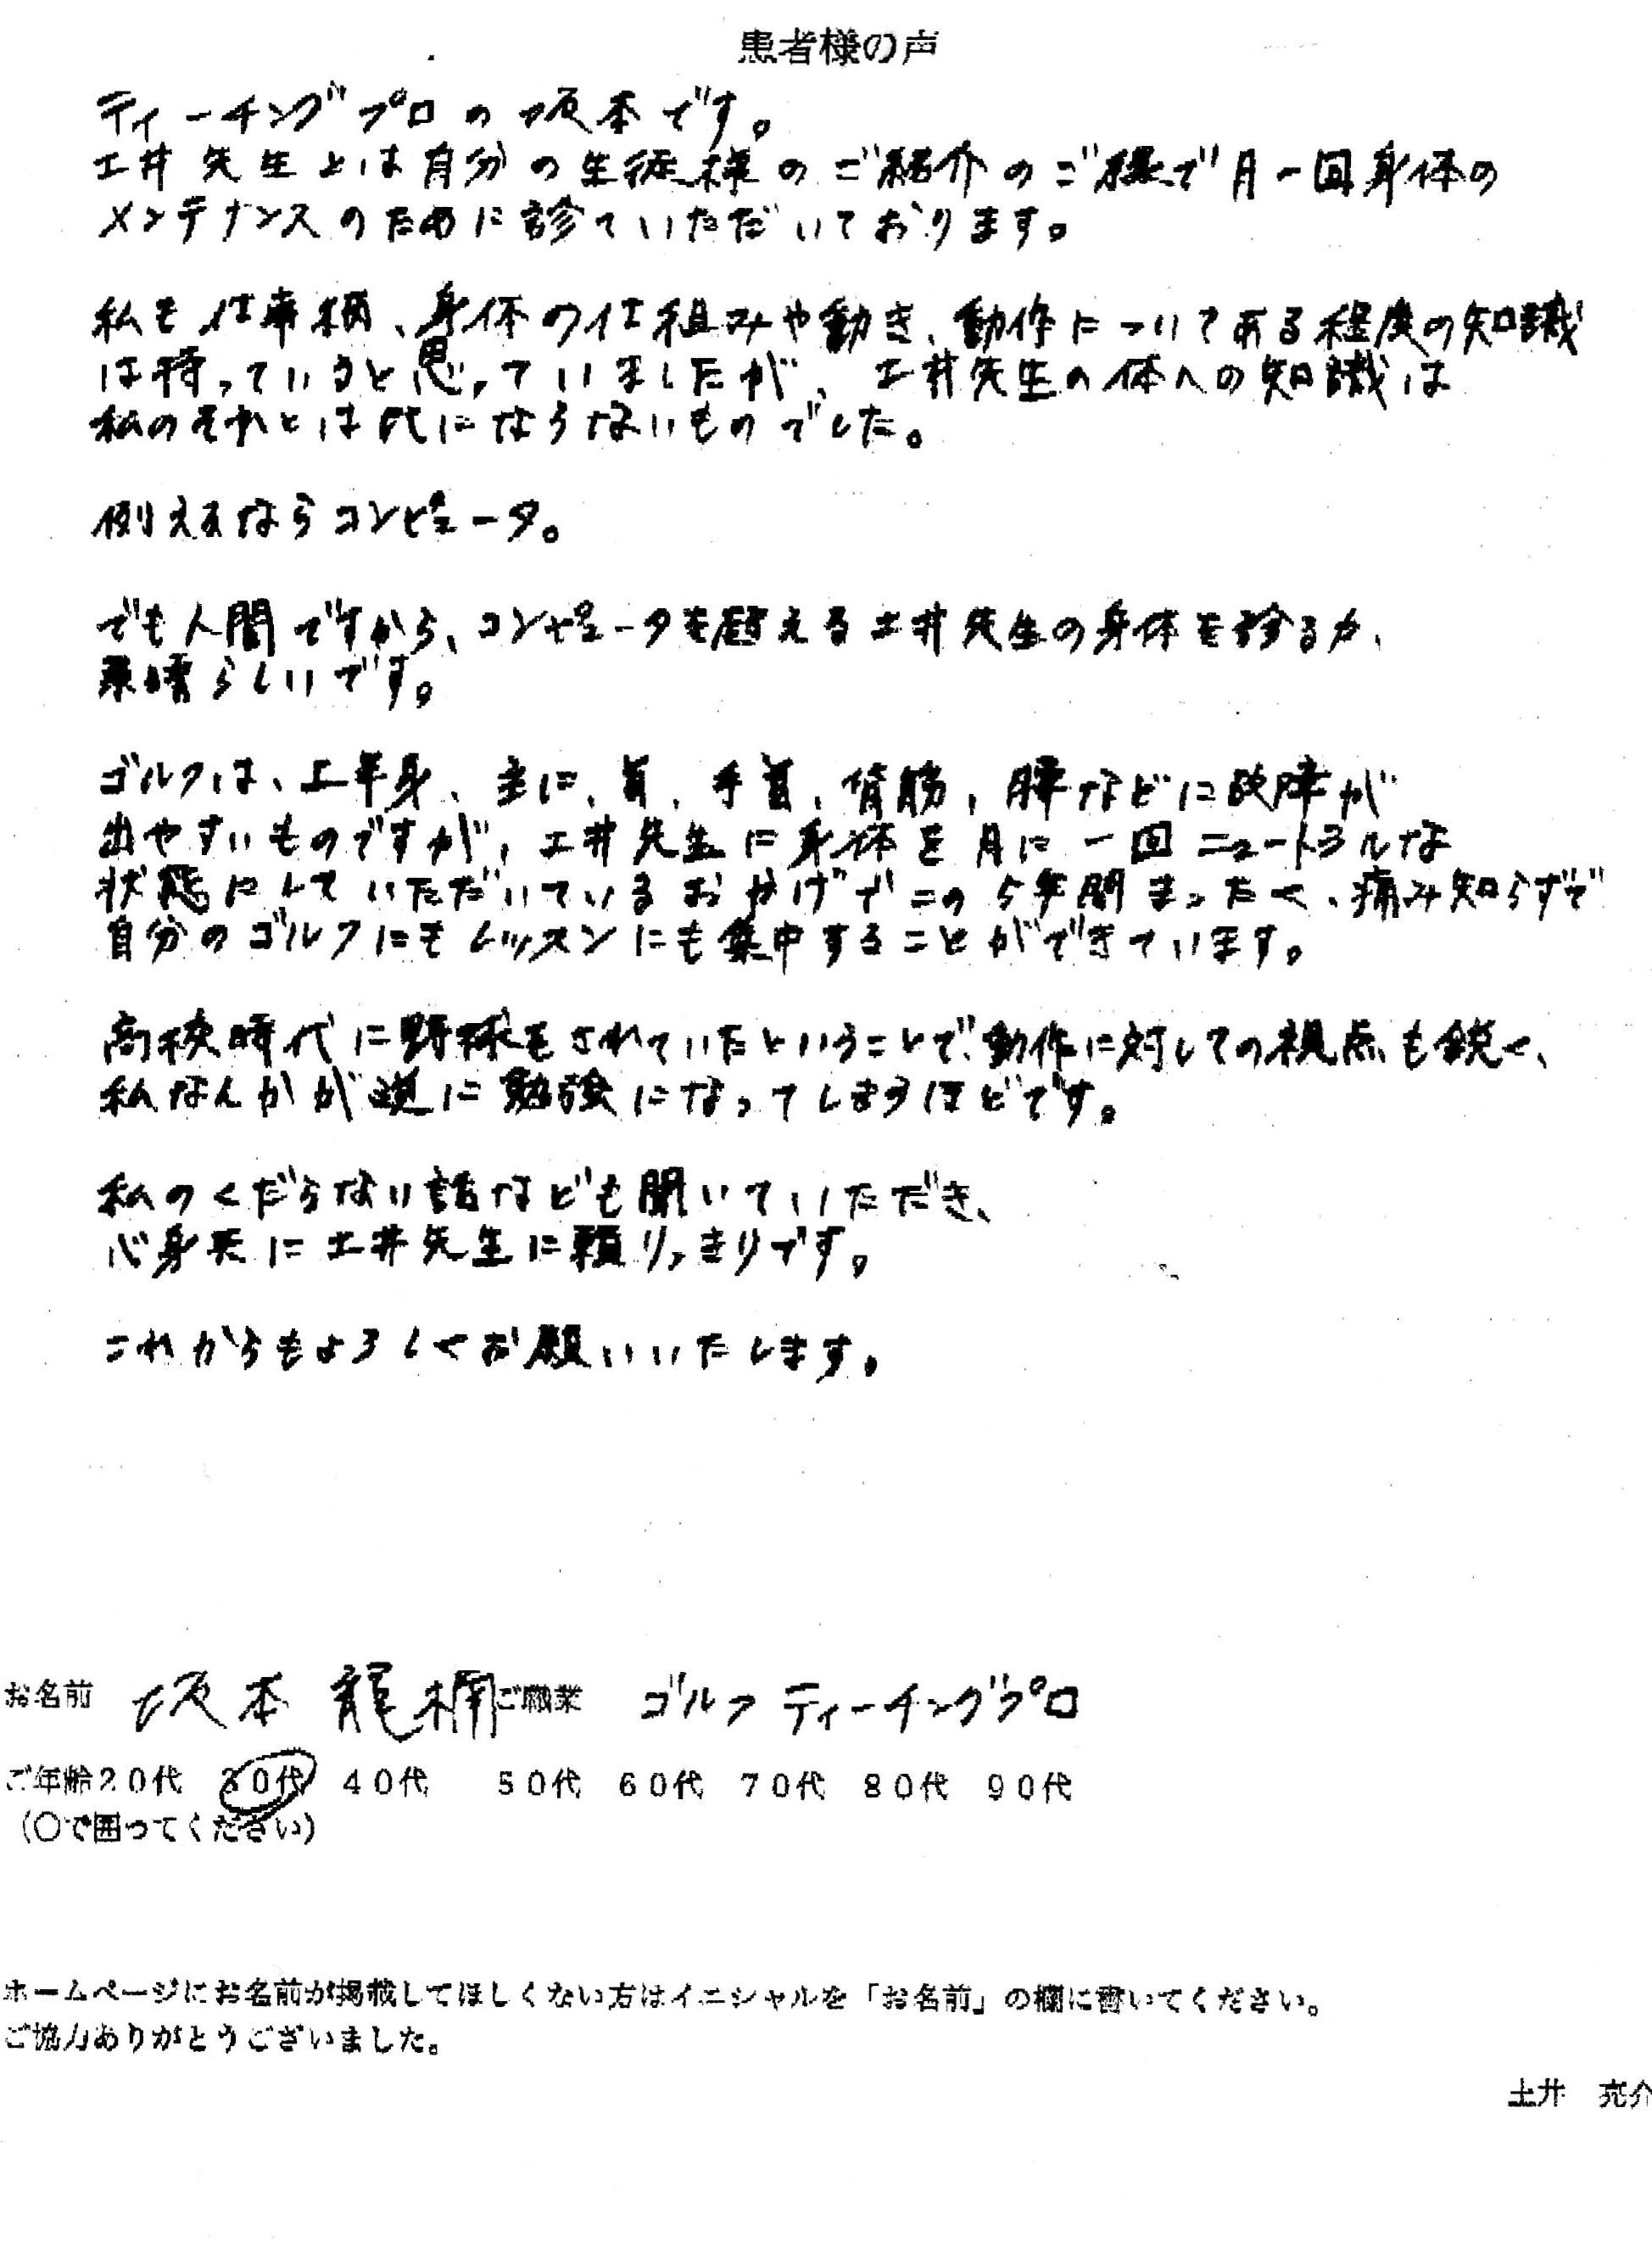 患者様の声
ティーチングプロの坂本です。
土井先生とは自分の生徒様のご紹介のご縁で月一回身体の
メンテナンスのために診ていただいております。
私も仕事柄、身体の仕組みや動き、動作についてある程度の知識
は持っていると思っていましたが、土井先生の体への知識は
私のそれとは比にならないものでした。
例えるならコンピュータ。
でも人間ですから、コンピュータを超える土井先生の身体を診る力、
素晴らしいです。
ゴルフは、上半身、主に、首、手首、背筋、腰などに故障が
出やすいものですが、土井先生に身体を月に一回ニュートラルな
状態にしていただいているおかげでこの5年間まったく、痛み知らずで
自分のゴルフにもレッスンにも集中することができています。
高校時代に野球をされていたということで、動作に対しての視点も鋭く、
私なんかが逆に勉強になってしまうほどです。
私のくだらない話なども聞いていただき、
心身共に土井先生に頼りっきりです。
これからもよろしくお願いいたします。
お名前 坂本 龍楠 ご職業 ゴルフティーチングプロ
ご年齢20代 30代 40代 50代 60代 70代 80代 90代
(〇で囲ってください)
ホームページにお名前が掲載してほしくない方はイニシャルを「お名前」の欄に書いてください。
ご協力ありがとうございました。
土井 亮介